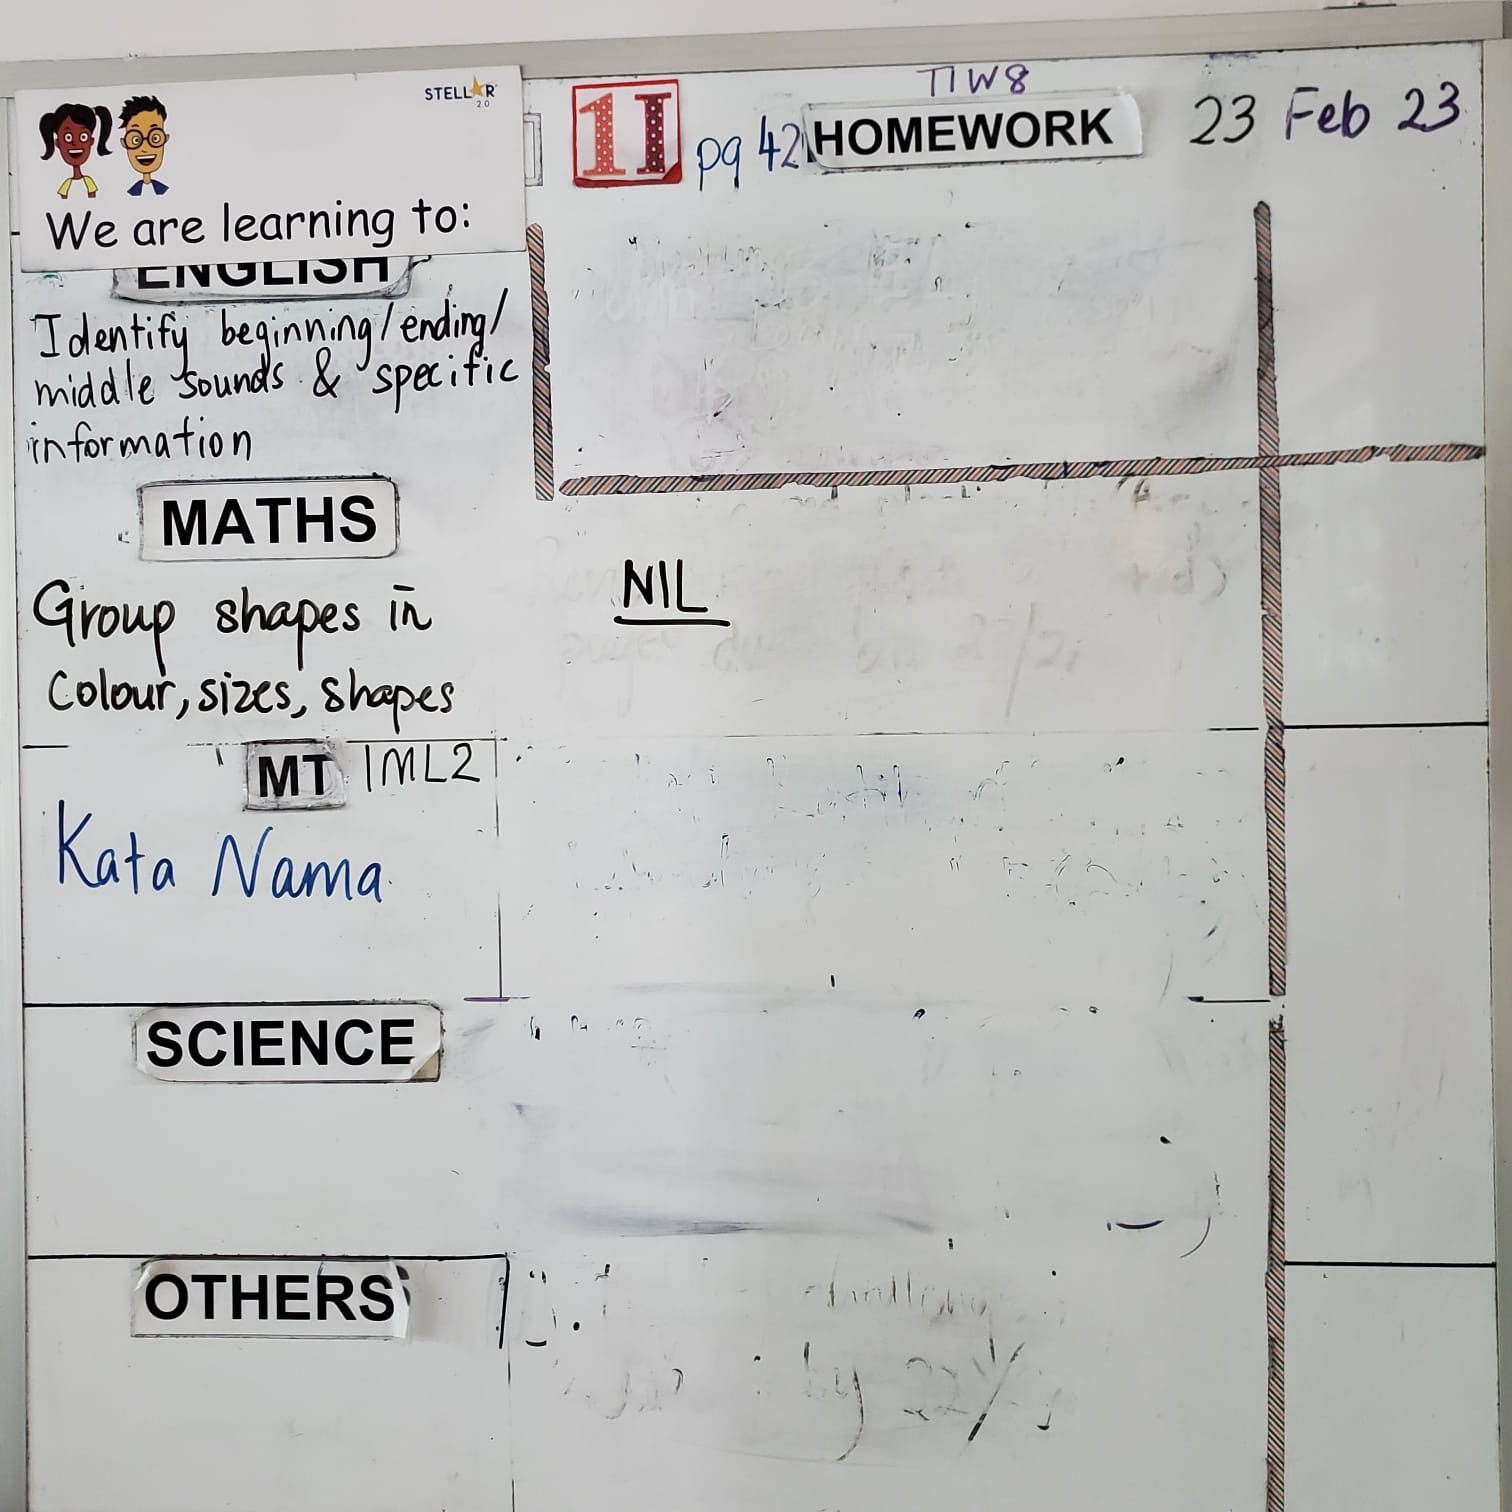 STELLAR
2.0
We are learning to:
1I
pg 42
T1W8
HOMEWORK
23 Feb 23
ENGLISH
Identify beginning/ending/
middle sounds & specific
information
MATHS
Group shapes in
Colour, sizes, shapes
NIL
MT 1ML2
Kata Nama
SCIENCE
OTHERS